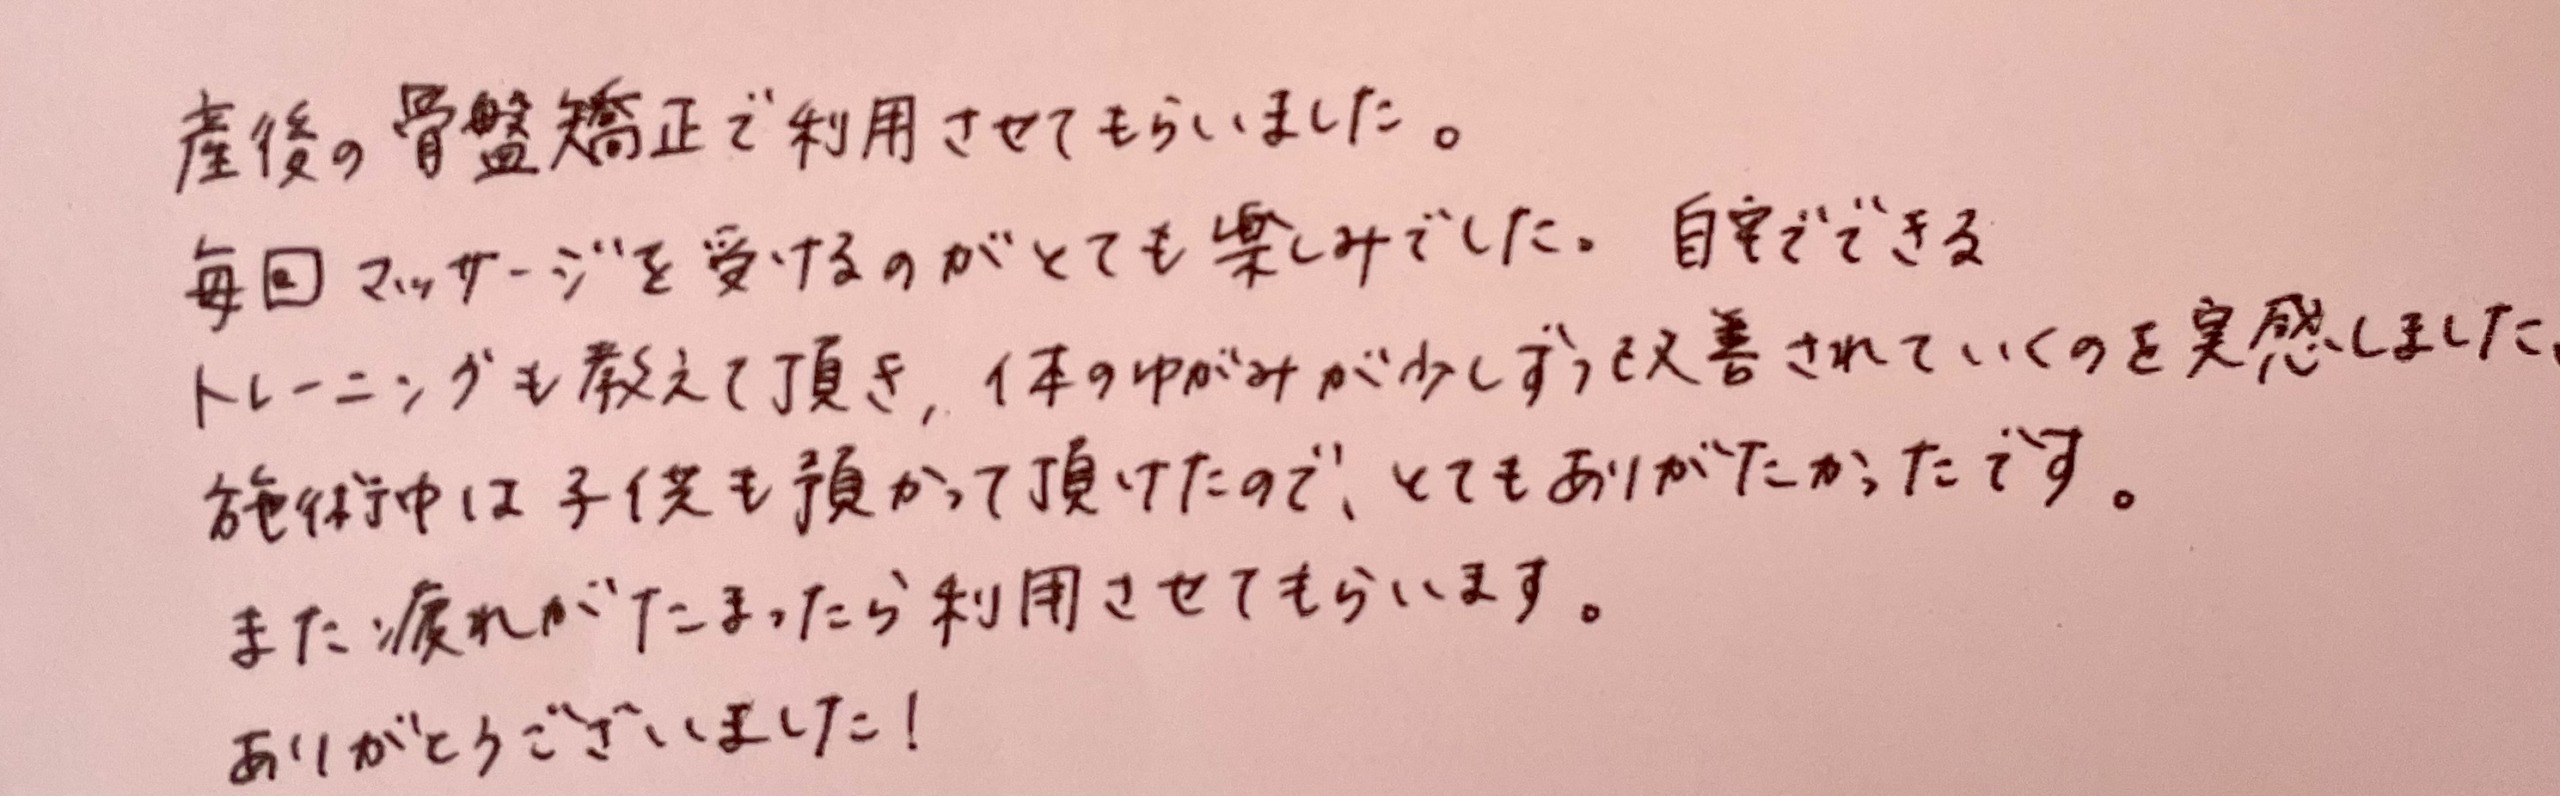 産後の骨盤矯正で利用させてもらいました。
毎回マッサージを受けるのがとても楽しみでした。自宅でできる
トレーニングも教えて頂き、体のゆがみが少しずつ改善されていくのを実感しました、
施術中は子供も預かって頂けたので、とてもありがたかったです。
また疲れがたまったら利用させてもらいます。
ありがとうございました!